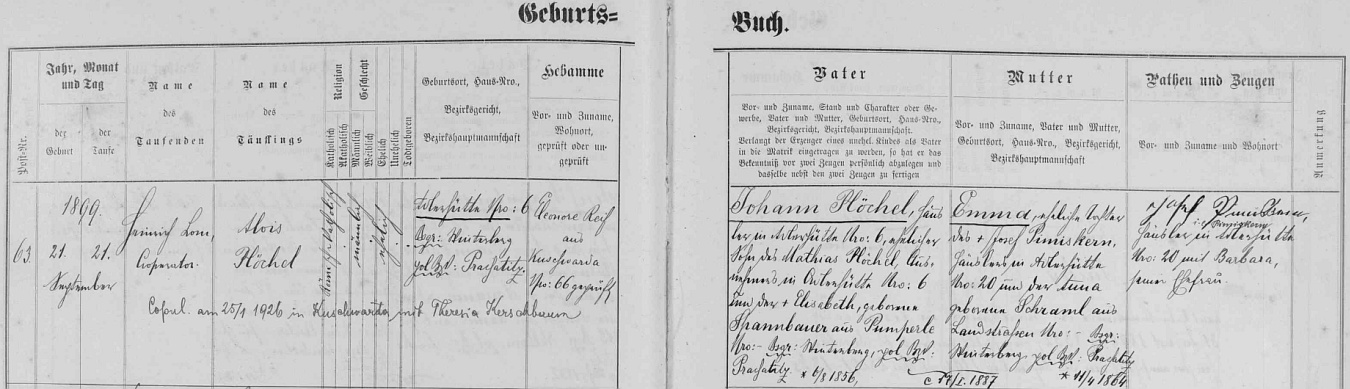 Geburts=
Buch.
Post-Nr.
Jahr, Monat
und Tag
der
Geburt
der
Taufe
Name
des
Taufenden
Name
des
Täuflings
Religion
Katholisch
Akatholisch
Geschlecht
Männlich
Weiblich
Ehelich
Unehelich
Todtgeboren
Geburtsort, Haus-Nro.,
Bezirksgericht,
Bezirkshauptmannschaft
Hebamme
Vor- und Zuname,
Wohnort,
geprüft oder un-
geprüft
63
1899.
21. 21.
September
Heinrich Lom,
Cooperator.
Alois
Plöchel
männlich
ehelich
Nro: 6
Bzgr: Winterberg
pol. Bzk: Prachatitz
Eleonore Reif
aus
Kuschwarda
Nro: 66 geprüft
Copul. am 25/1 1926 in Kuschwarda mit Theresia Kerschbaum
Vater
Vor- und Zuname, Stand und Charakter oder Ge-
werbe, Vater und Mutter, Geburtsort, Haus-Nro.,
Bezirksgericht, Bezirkshauptmannschaft.
Verlangt der Erzeuger eines unehel. Kindes als Vater
in die Matrik eingetragen zu werden, so hat er das
Bekenntniß vor zwei Zeugen persönlich abzulegen und
dasselbe nebst den zwei Zeugen zu fertigen
Johann Plöchel, Häus-
ler in Nro: 6, ehelicher
Sohn des Mathias Plöchel, Aus-
nehmers in Nro: 6
und der + Elisabeth, geborene
Spannbauer aus Pumperle
Nro:- Bzgr: Winterberg, pol. Bzk:
Prachatitz * 6/8 1856,
Mutter
Vor- und Zuname, Vater und Mutter,
Geburtsort, Haus-Nro., Bezirksgericht,
Bezirkshauptmannschaft
Emma, eheliche Tochter
des + Josef
Häuslers in
Nro: 20 und der Anna
geborene Schraml aus
Landstraßen Nro:- Bzgr:
Winterberg, pol. Bzk: Prachatitz
1887 * 11/4 1864
Pathen und Zeugen
Vor- und Zuname und Wohnort
Josef
Häusler in
Nro: 20 mit Barbara,
seiner Ehefrau.
Anmerkung